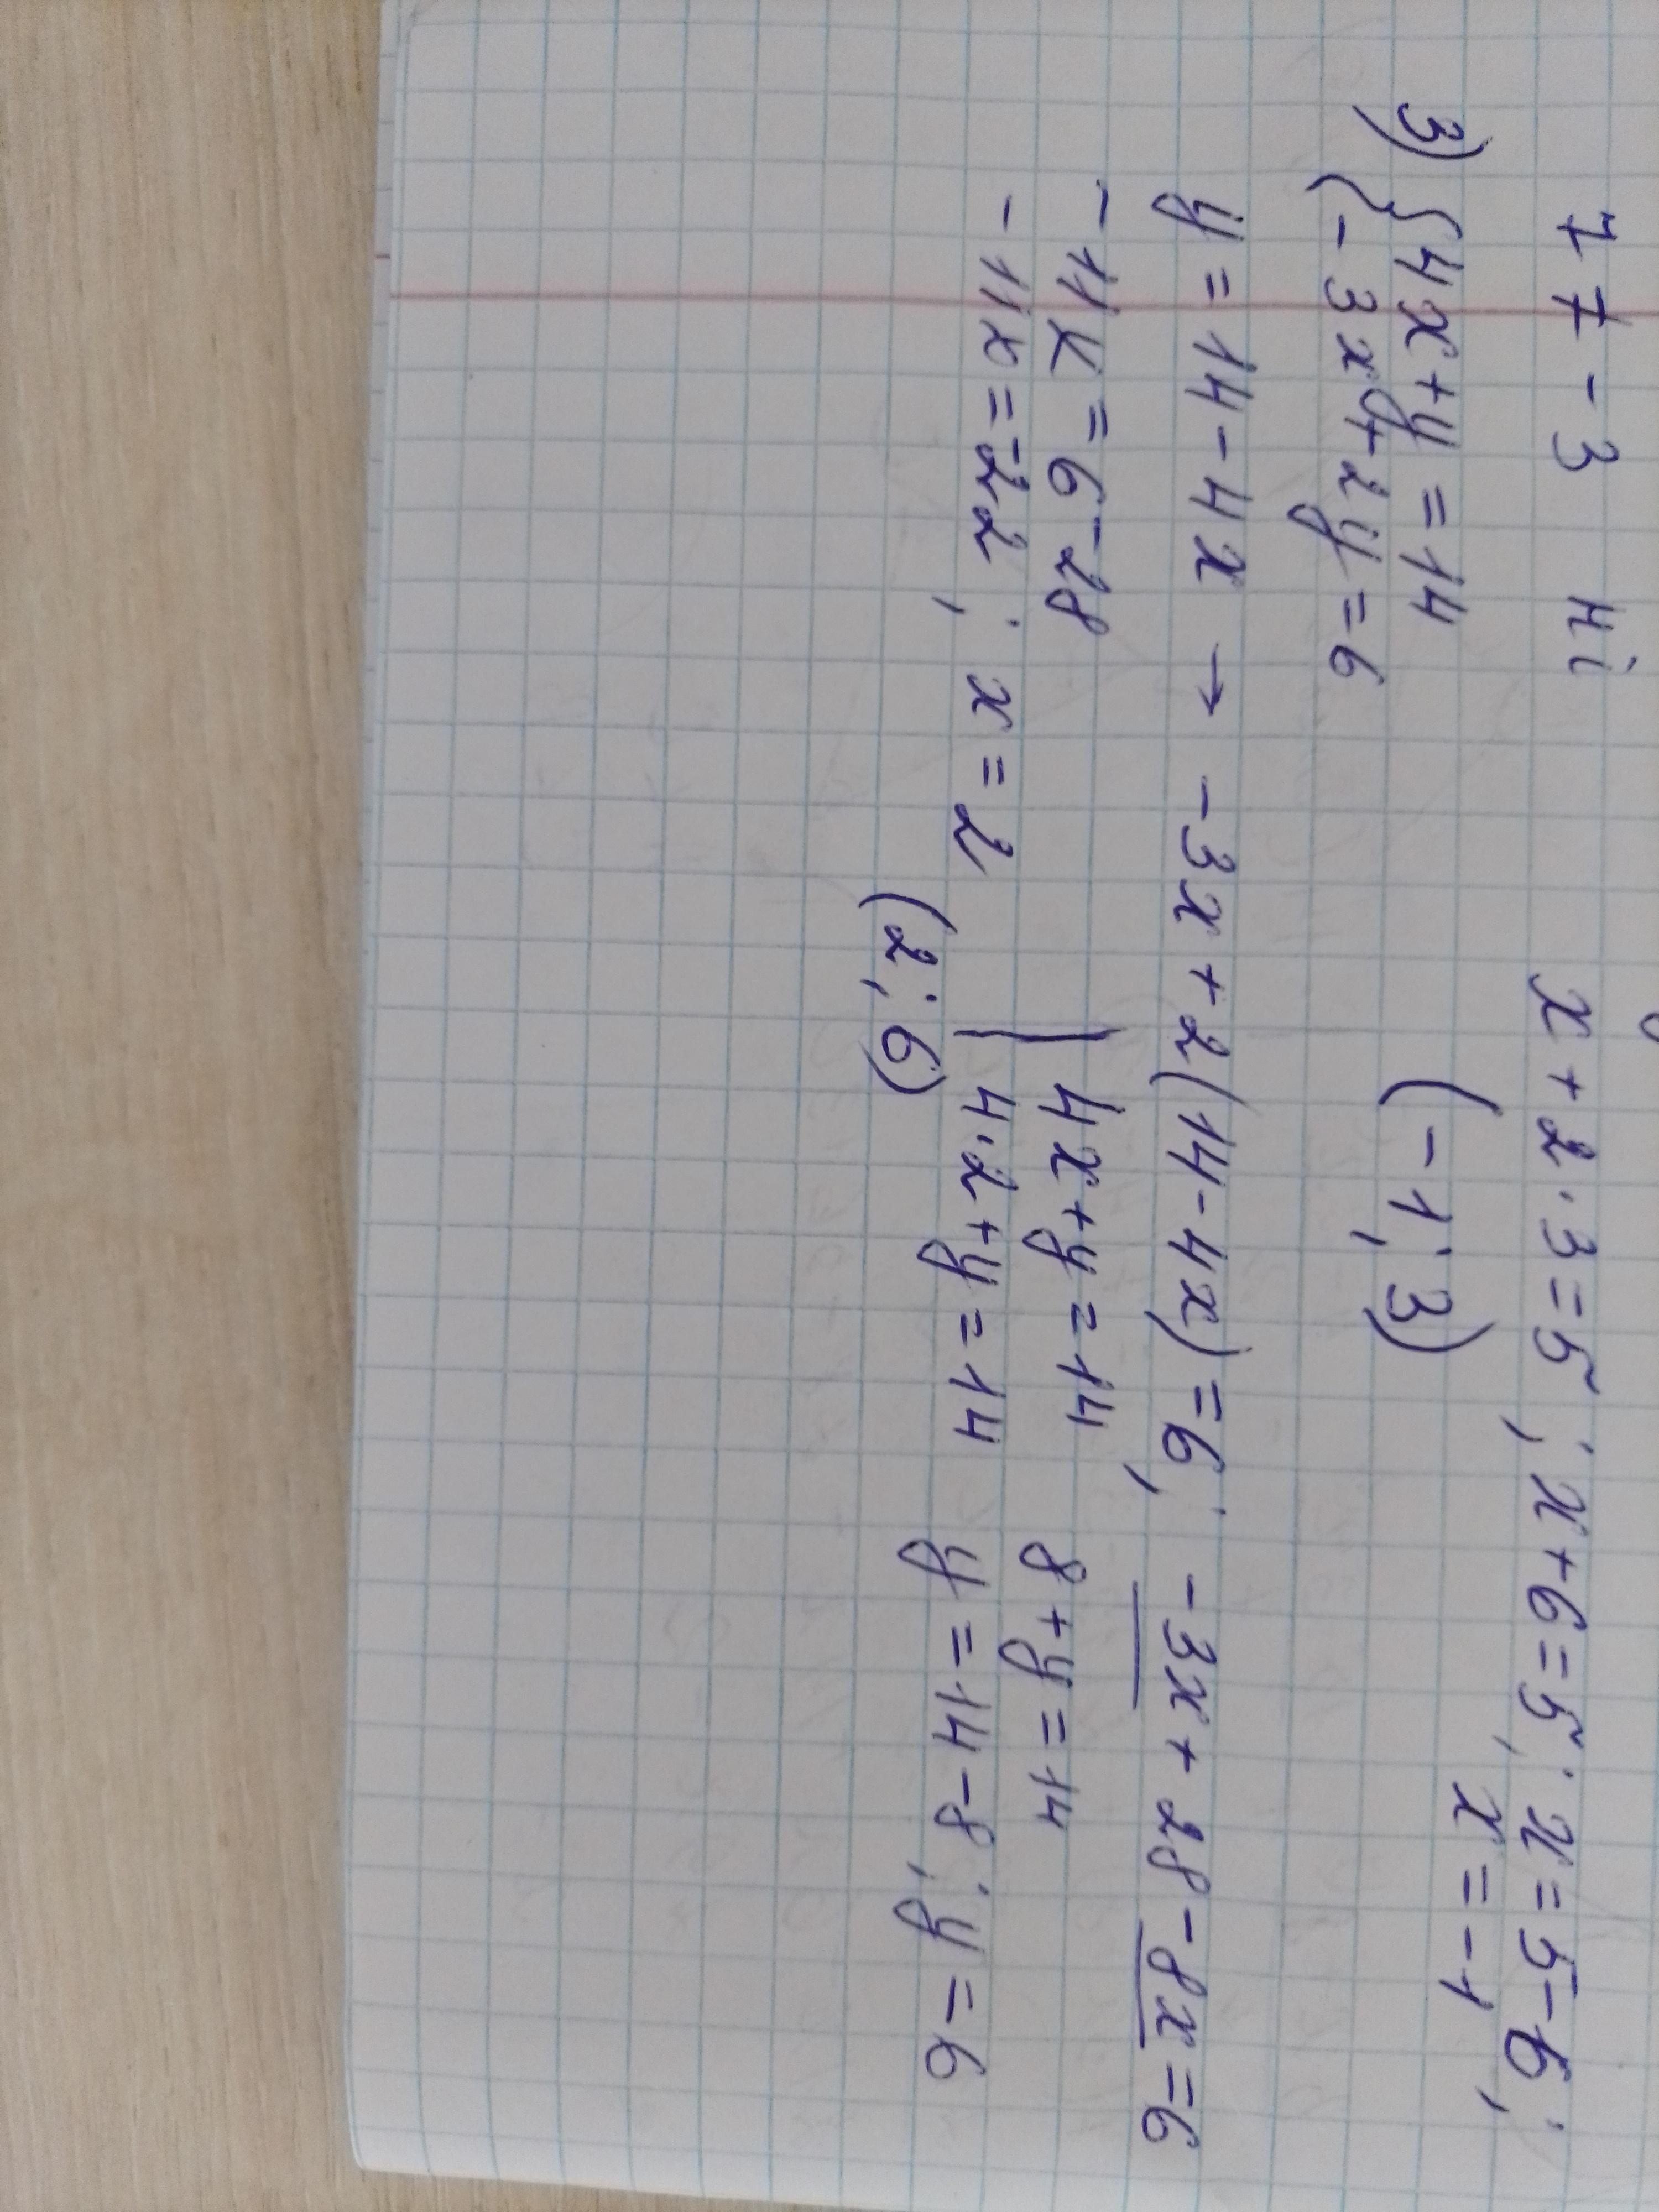 7 7 - 3 ні x + 2 · 3 = 5 ; x + 6 = 5 ; x = 5 - 6 ;
x = -1
(-1; 3)
3) { 4x + y = 14
- 3x + 2y = 6
y = 14 - 4x → - 3x + 2(14 - 4x) = 6 ; - 3x + 28 - 8x = 6
- 11x = 6 - 28 4x + y = 14 8 + y = 14
- 11x = -22 ; x = 2 4 · 2 + y = 14 y = 14 - 8 ; y = 6
(2; 6)